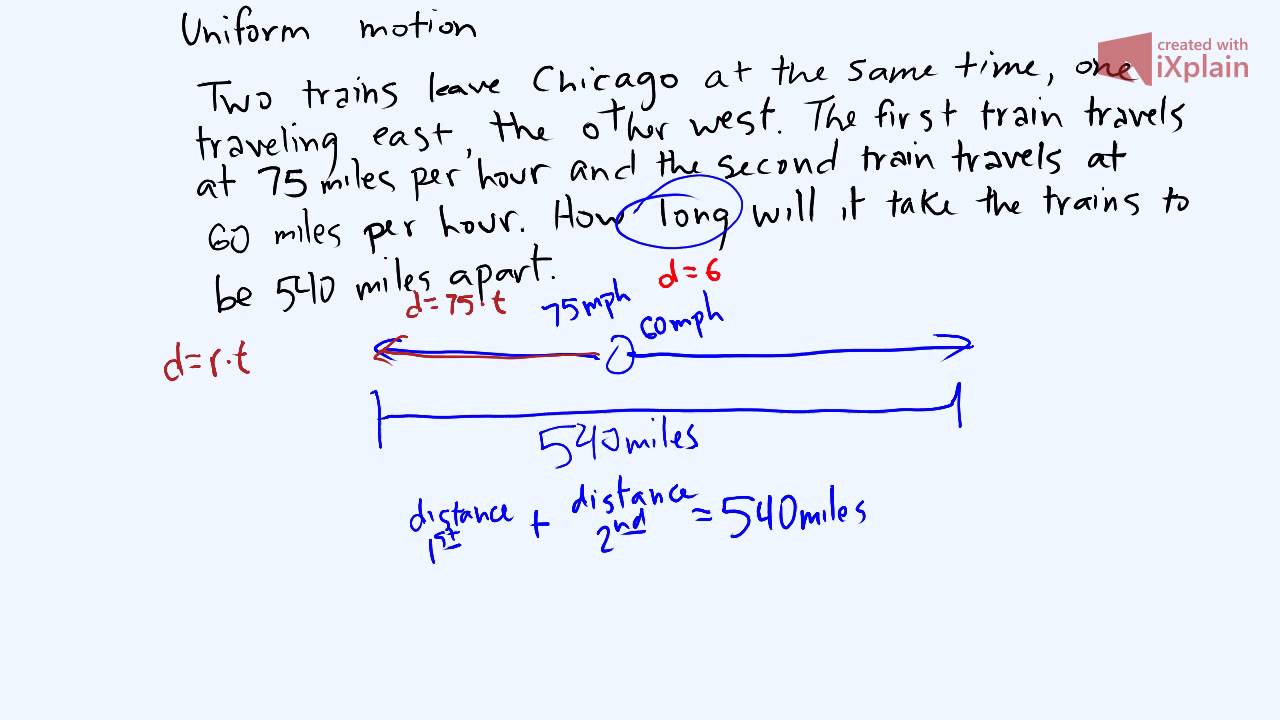 Uniform motion
created with
iXplain
Two trains leave Chicago at the same time, one
traveling east, the other west. The first train travels
at 75 miles per hour and the second train travels at
60 miles per hour. How long will it take the trains to
be 540 miles apart.
d=6
d=75·t
75mph
60mph
d=r·t
540miles
distance 1st + distance 2nd = 540miles